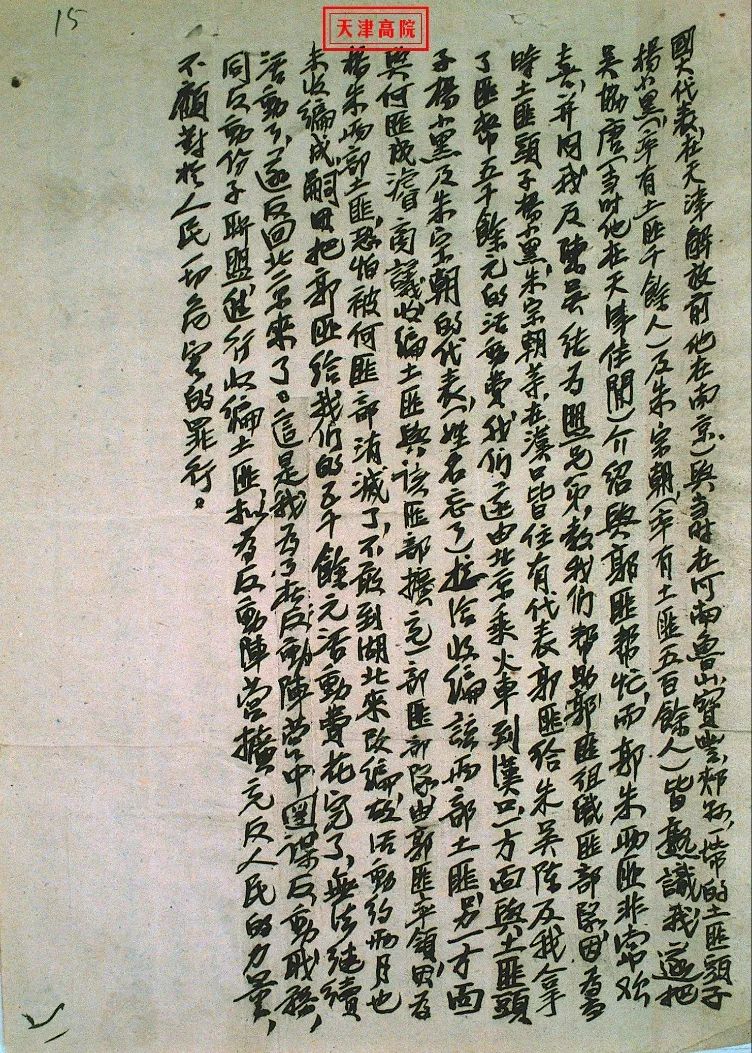 15
天津高院
國大代表，在天津解放前他在南京）與當時在河南魯山、寶豐、郟縣一帶的土匪頭子
楊小黑（率有土匪千餘人）及朱宗朝（率有土匪五百餘人）皆熟識，我遂把
吳協唐（當时他在天津住閒）介紹與郭匪帮忙，而郭朱两匪非常欢
喜，并同我及陳吳结为盟兄弟，教我们帮助郭匪组織匪部隊，因为當
時土匪頭子楊小黑、朱宗朝等，在漢口皆住有代表，郭匪給朱吳陈及我拿
了匪幣五千餘元的活動費，我们遂由北京乘火車到漢口，一方面與土匪頭
子楊小黑及朱宗朝的代表（姓名忘了）接洽收編該两部土匪，另一方面
與何匪成濬商議收編土匪與該匪部擴充一部匪部隊，由郭匪率領，因为
楊朱两部土匪，恐怕被何匪部消滅了，不敢到湖北来改編，故活動約两月也
未收編成，嗣因把郭匪给我们的五千餘元活動費花完了，無法继續
活動了，遂反回北京来了。這是我为了在反動陣营中圖謀反動職務，
同反動份子聯盟，進行收編土匪，拟为反動陣营擴充反人民的力量，
不顧對於人民一切危害的罪行。